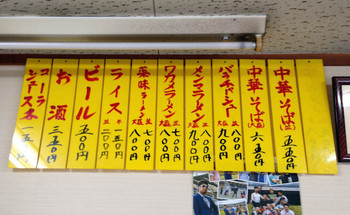 中華そば 五五〇円
中華そば 六五〇円
バタチャーシュー 八〇〇円 大盛 九〇〇円
メンマラーメン 並 八〇〇円 大盛 九〇〇円
ワカメラーメン 並 七〇〇円 大盛 八〇〇円
薬味ラーメン 並 七〇〇円 大盛 八〇〇円
ライス 半 一五〇円 並 二〇〇円
ビール 五五〇円
お酒 三五〇円
コーラ